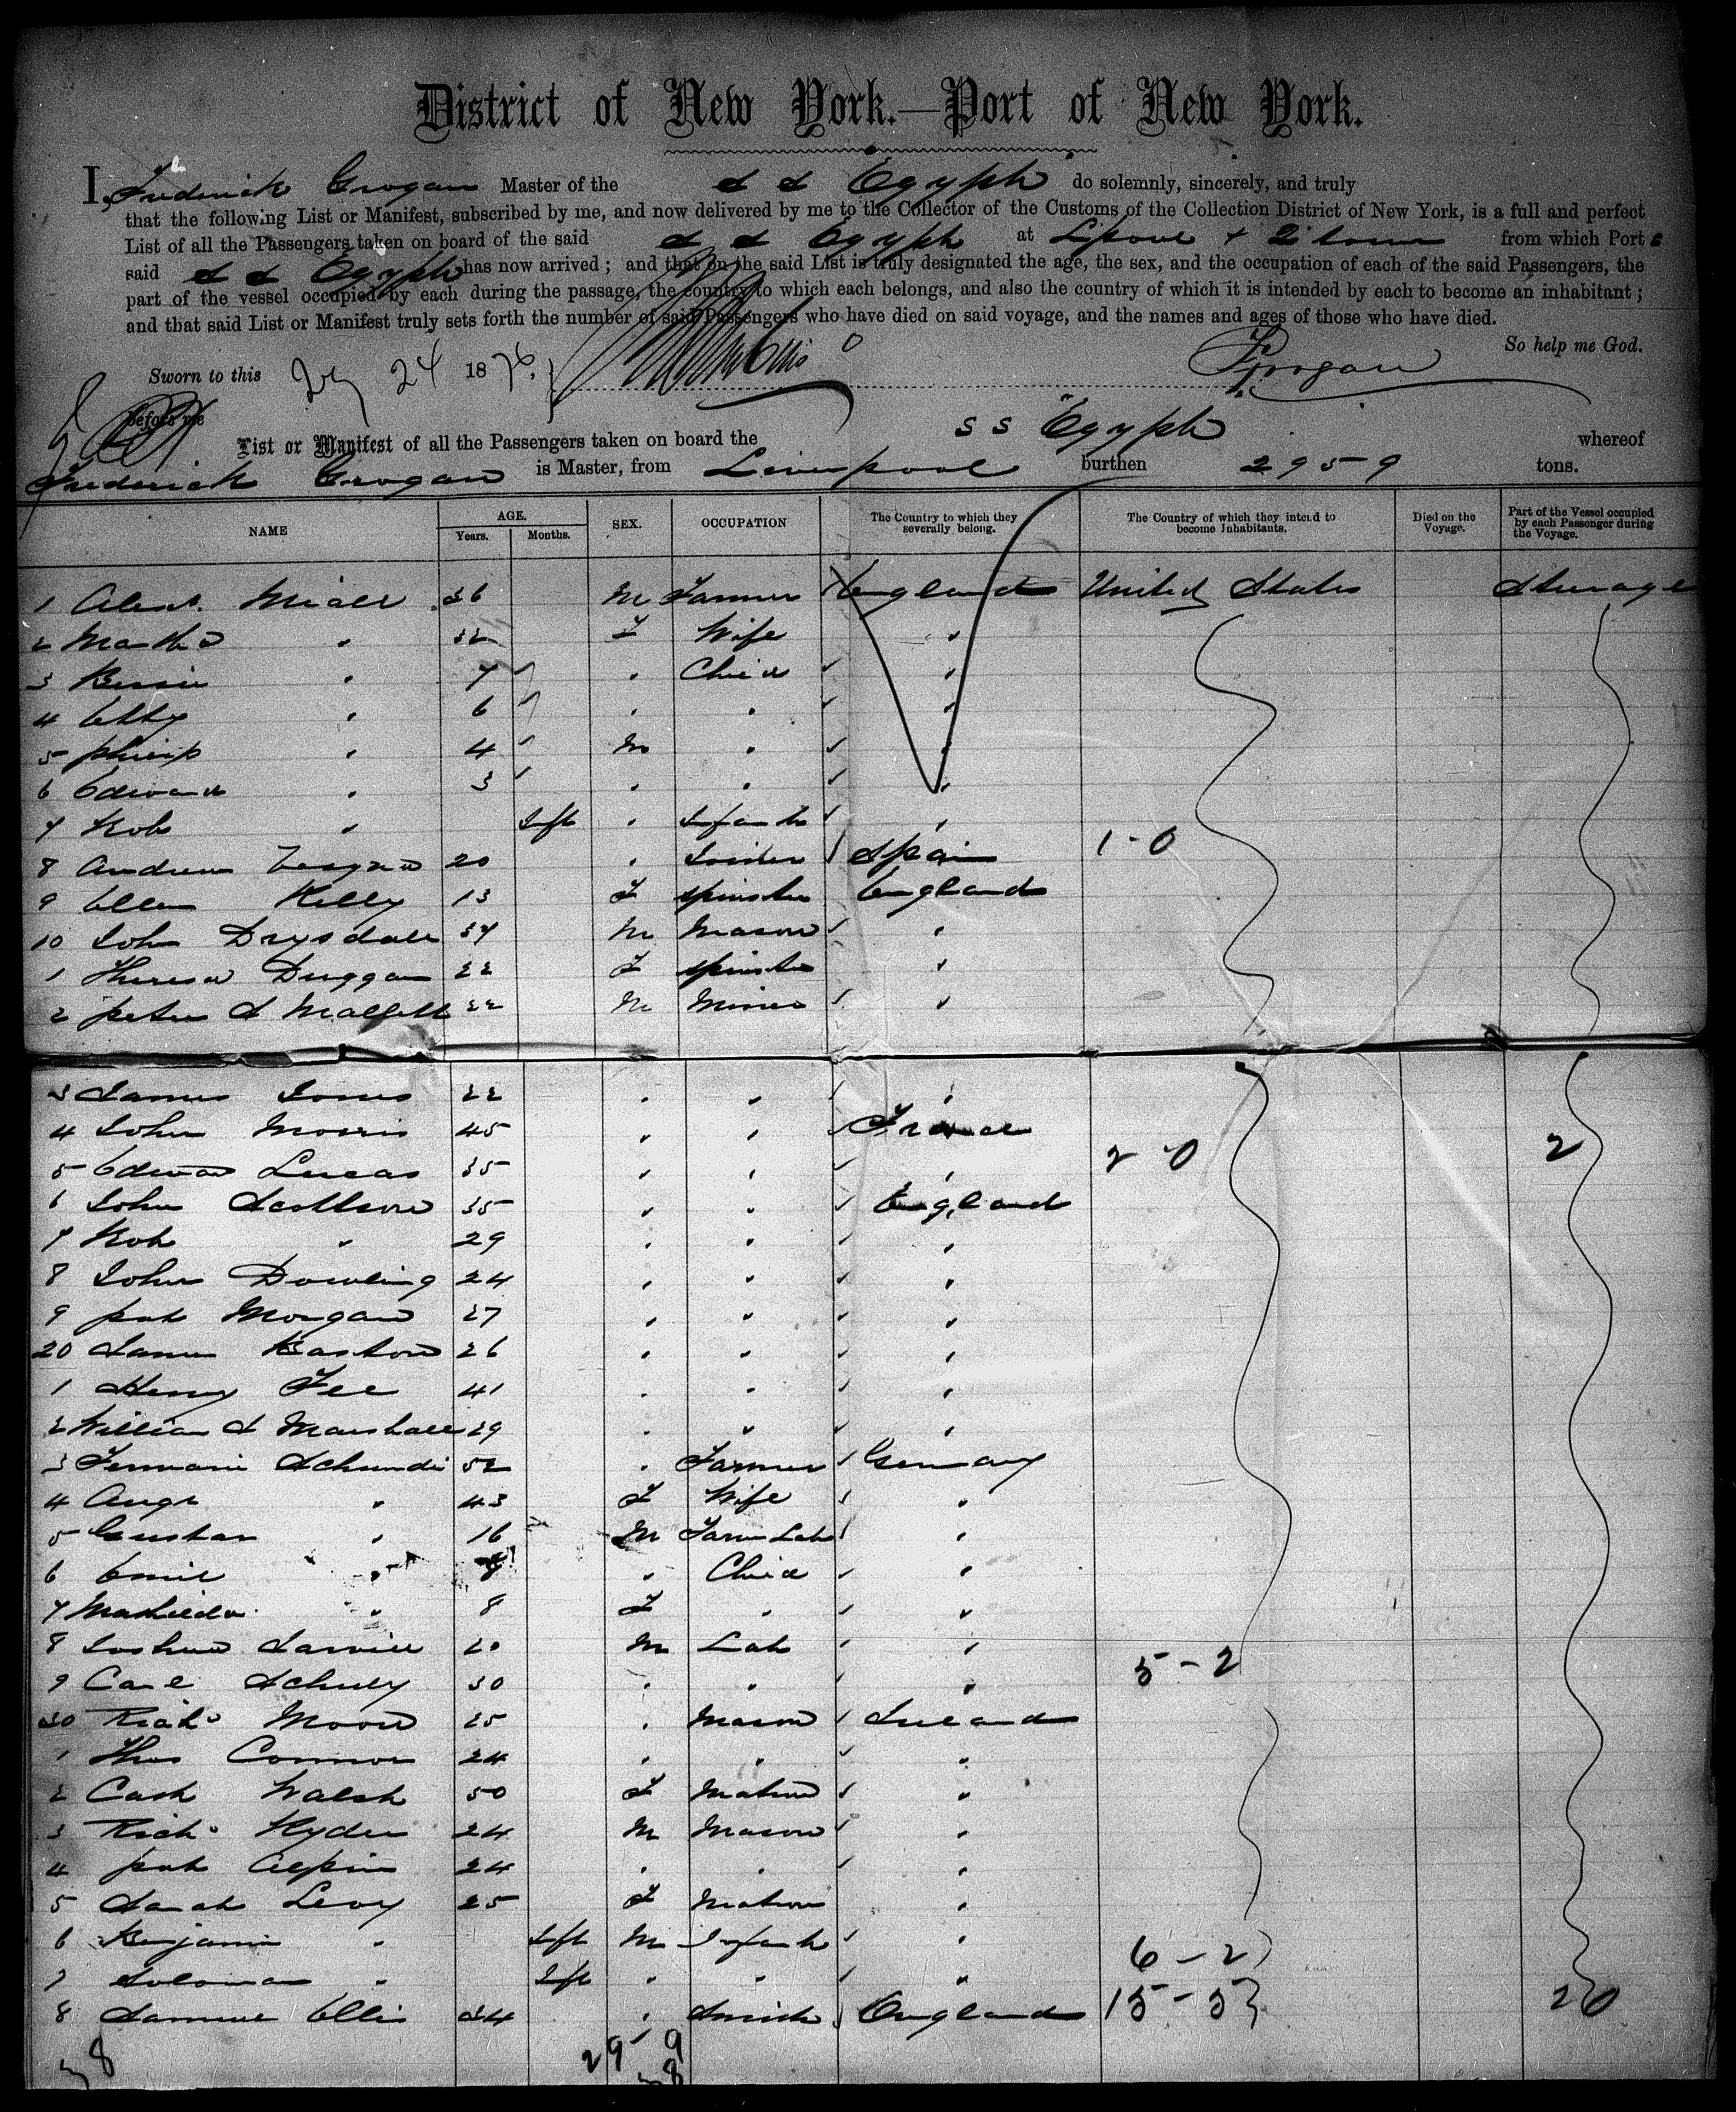 District of New York.—Port of New York.
I, Frederick Grogan Master of the S S Egypt do solemnly, sincerely, and truly
that the following List or Manifest, subscribed by me, and now delivered by me to the Collector of the Customs of the Collection District of New York, is a full and perfect
List of all the Passengers taken on board of the said S S Egypt at Lpool + Qtown from which Port
said S S Egypt has now arrived; and that on the said List is truly designated the age, the sex, and the occupation of each of the said Passengers, the
part of the vessel occupied by each during the passage, the country to which each belongs, and also the country of which it is intended by each to become an inhabitant;
and that said List or Manifest truly sets forth the number of said Passengers who have died on said voyage, and the names and ages of those who have died.
So help me God.
Sworn to this 24 1876. Grogan
before me
List or Manifest of all the Passengers taken on board the S S Egypt whereof
Frederick Grogan is Master, from Liverpool burthen 2959 tons.
NAME AGE. Years. Months. SEX. OCCUPATION The Country to which they severally belong. The Country of which they intend to become Inhabitants. Died on the Voyage. Part of the Vessel occupied by each Passenger during the Voyage.
1 Alext. Miall 36 M Farmer England United States Steerage
2 Martha " 32 F Wife "
3 Bessie " 7 " Child "
4 Etty " 6 " " "
5 Philip " 4 M " "
6 Edward " 3 " " "
7 Rob " Inft " Infant "
8 Andrew 20 " Spain 1-0
9 Ellen Kelly 13 F Spinster England
10 John Drysdale 37 M Mason "
1 Theresa Duggan 22 F Spinster "
2 Peter S Mallett 22 M Miner "
3 James Jones 22 " " "
4 John Morris 45 " " France
5 Edward Lucas 35 " " " 2-0 2
6 John Scollson 35 " " England
7 Rob " 29 " " "
8 John Dowling 24 " " "
9 Pat Morgan 27 " " "
20 James Bastow 26 " " "
1 Henry Fee 41 " " "
2 William S Marshall 29 " " "
3 Schundi 52 " Farmer Germany
4 Augt " 43 F Wife "
5 Gustav " 16 M Farm Lab "
6 Emil " " Child "
7 Mathilda " 8 F " "
8 Joshua 20 M Lab "
9 Carl Schuly 30 " " " 5-2
30 Richd Moore 25 " Mason Ireland
1 Thos Connor 24 " " "
2 Cath Walsh 50 F Matron "
3 Richd Hyder 24 M Mason "
4 Pat Alpin 24 " " "
5 Sarah Levy 25 F Matron "
6 Benjamin " Inft M Infant " 6-2
7 Soloman " Inft " " "
8 Samuel Ellis 24 " Smith England 15-5 20
38 29-9
38